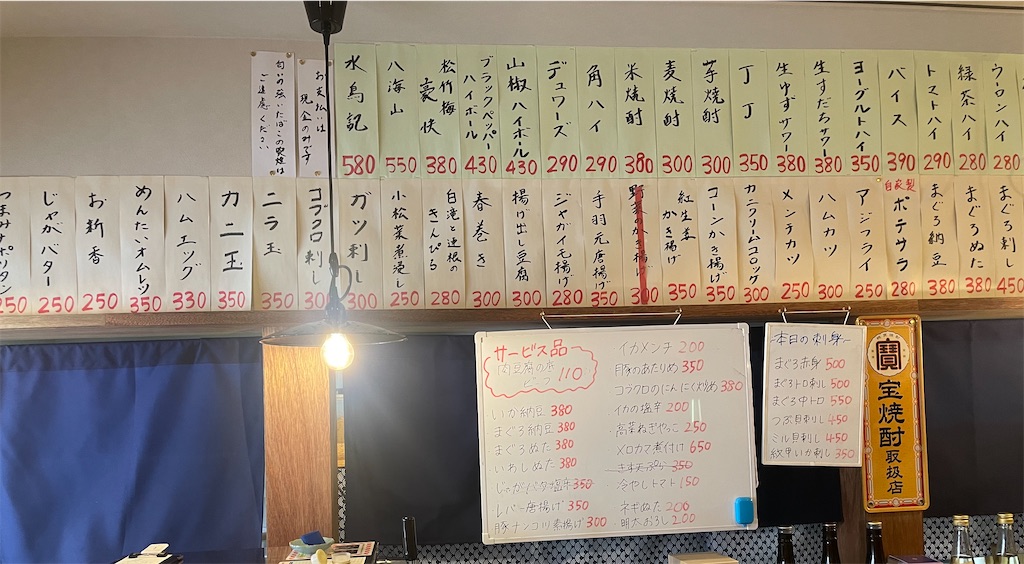 ウーロンハイ 280
緑茶ハイ 280
トマトハイ 290
バイス 390
ヨーグルトハイ 350
生すだちサワー 380
生ゆずサワー 380
丁丁 350
芋焼酎 300
麦焼酎 300
米焼酎 380
角ハイ 290
デュワーズ 290
山椒ハイボール 430
ブラックペッパーハイボール 430
松竹梅豪快 380
八海山 550
水鳥記 580
お支払いは
現金のみです
匂いの強いたばこの喫煙は
ご遠慮ください
まぐろ刺し 450
まぐろぬた 380
まぐろ納豆 380
自家製
ポテサラ 280
アジフライ 250
ハムカツ 300
メンチカツ 250
カニクリームコロッケ 300
コーンかき揚げ 350
紅生姜かき揚げ 350
野菜のかき揚げ 300
手羽元唐揚げ 350
ジャガイモ揚げ 280
揚げ出し豆腐 300
春巻き 300
白滝と蓮根のきんぴら 280
小松菜煮浸し 250
ガツ刺し 300
コブクロ刺し 300
ニラ玉 350
カニ玉 350
ハムエッグ 330
めんたいオムレツ 350
お新香 250
じゃがバター 250
サービス品
110
いか納豆 380
まぐろ納豆 380
まぐろぬた 380
いわしぬた 380
じゃがバタ塩辛 350
レバー唐揚げ 350
豚ナンコツ素揚げ 300
イカメンチ 200
豚のあたりめ 350
コブクロのにんにく炒め 380
イカの塩辛 200
高菜ねぎやっこ 250
メロカマ煮付け 650
350
冷やしトマト 150
ネギぬた 200
明太おろし 200
本日の刺身
まぐろ赤身 500
まぐろトロ刺し 500
まぐろ中トロ 550
つぶ貝刺し 450
ミル貝刺し 450
紋甲いか刺し 350
寶
宝焼酎
取扱店